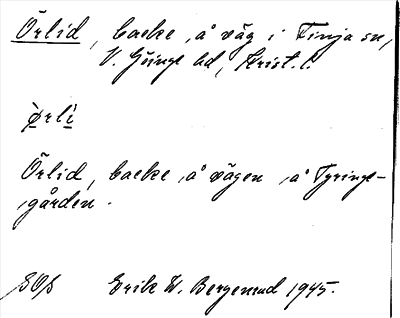 Örlid, backe å väg i Finja sn,
V. Göinge hd, Krist. l.
Örlid, backe å vägen å Tyringe-
gården.
Erik W. Bergenrud 1945.